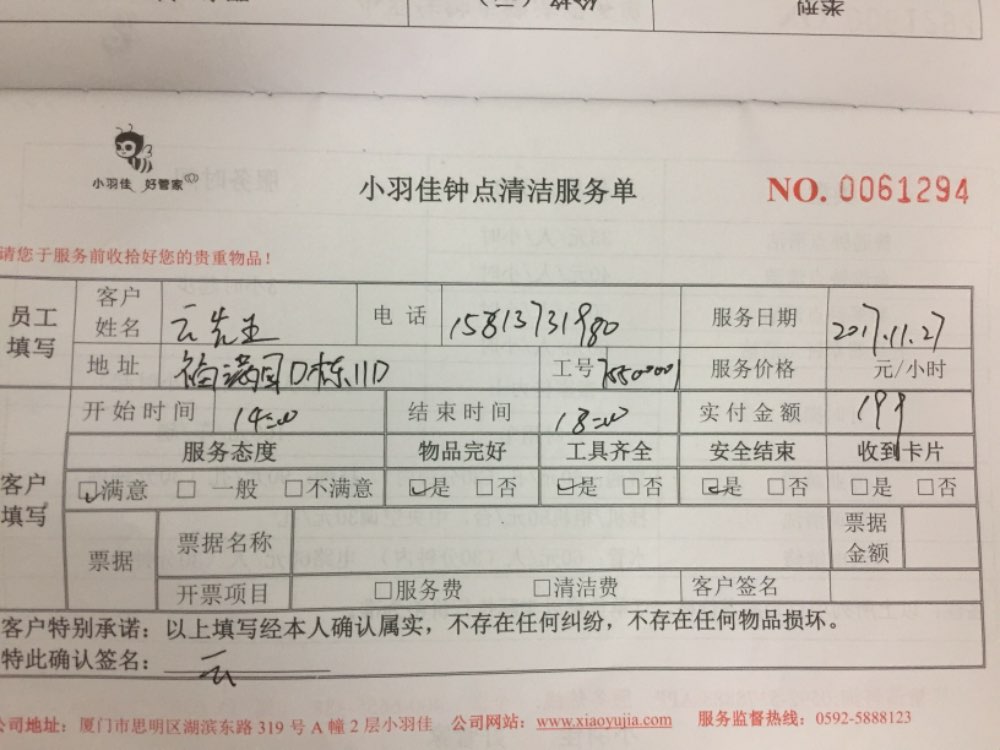 类型
小羽佳 好管家
小羽佳钟点清洁服务单
NO. 0061294
请您于服务前收拾好您的贵重物品！
员工填写
客户姓名 云先生 电话 15813731980 服务日期 2017.11.27
地址 D栋11D 工号 服务价格 元/小时
开始时间 14:00 结束时间 18:00 实付金额 199
客户填写
服务态度 物品完好 工具齐全 安全结束 收到卡片
☑满意 □ 一般 □不满意 ☑是 □否 ☑是 □否 ☑是 □否 □是 □否
票据 票据名称 票据金额
开票项目 □服务费 □清洁费 客户签名
客户特别承诺：以上填写经本人确认属实，不存在任何纠纷，不存在任何物品损坏。
特此确认签名： 云
公司地址：厦门市思明区湖滨东路 319 号 A 幢 2 层小羽佳 公司网站：www.xiaoyujia.com 服务监督热线：0592-5888123